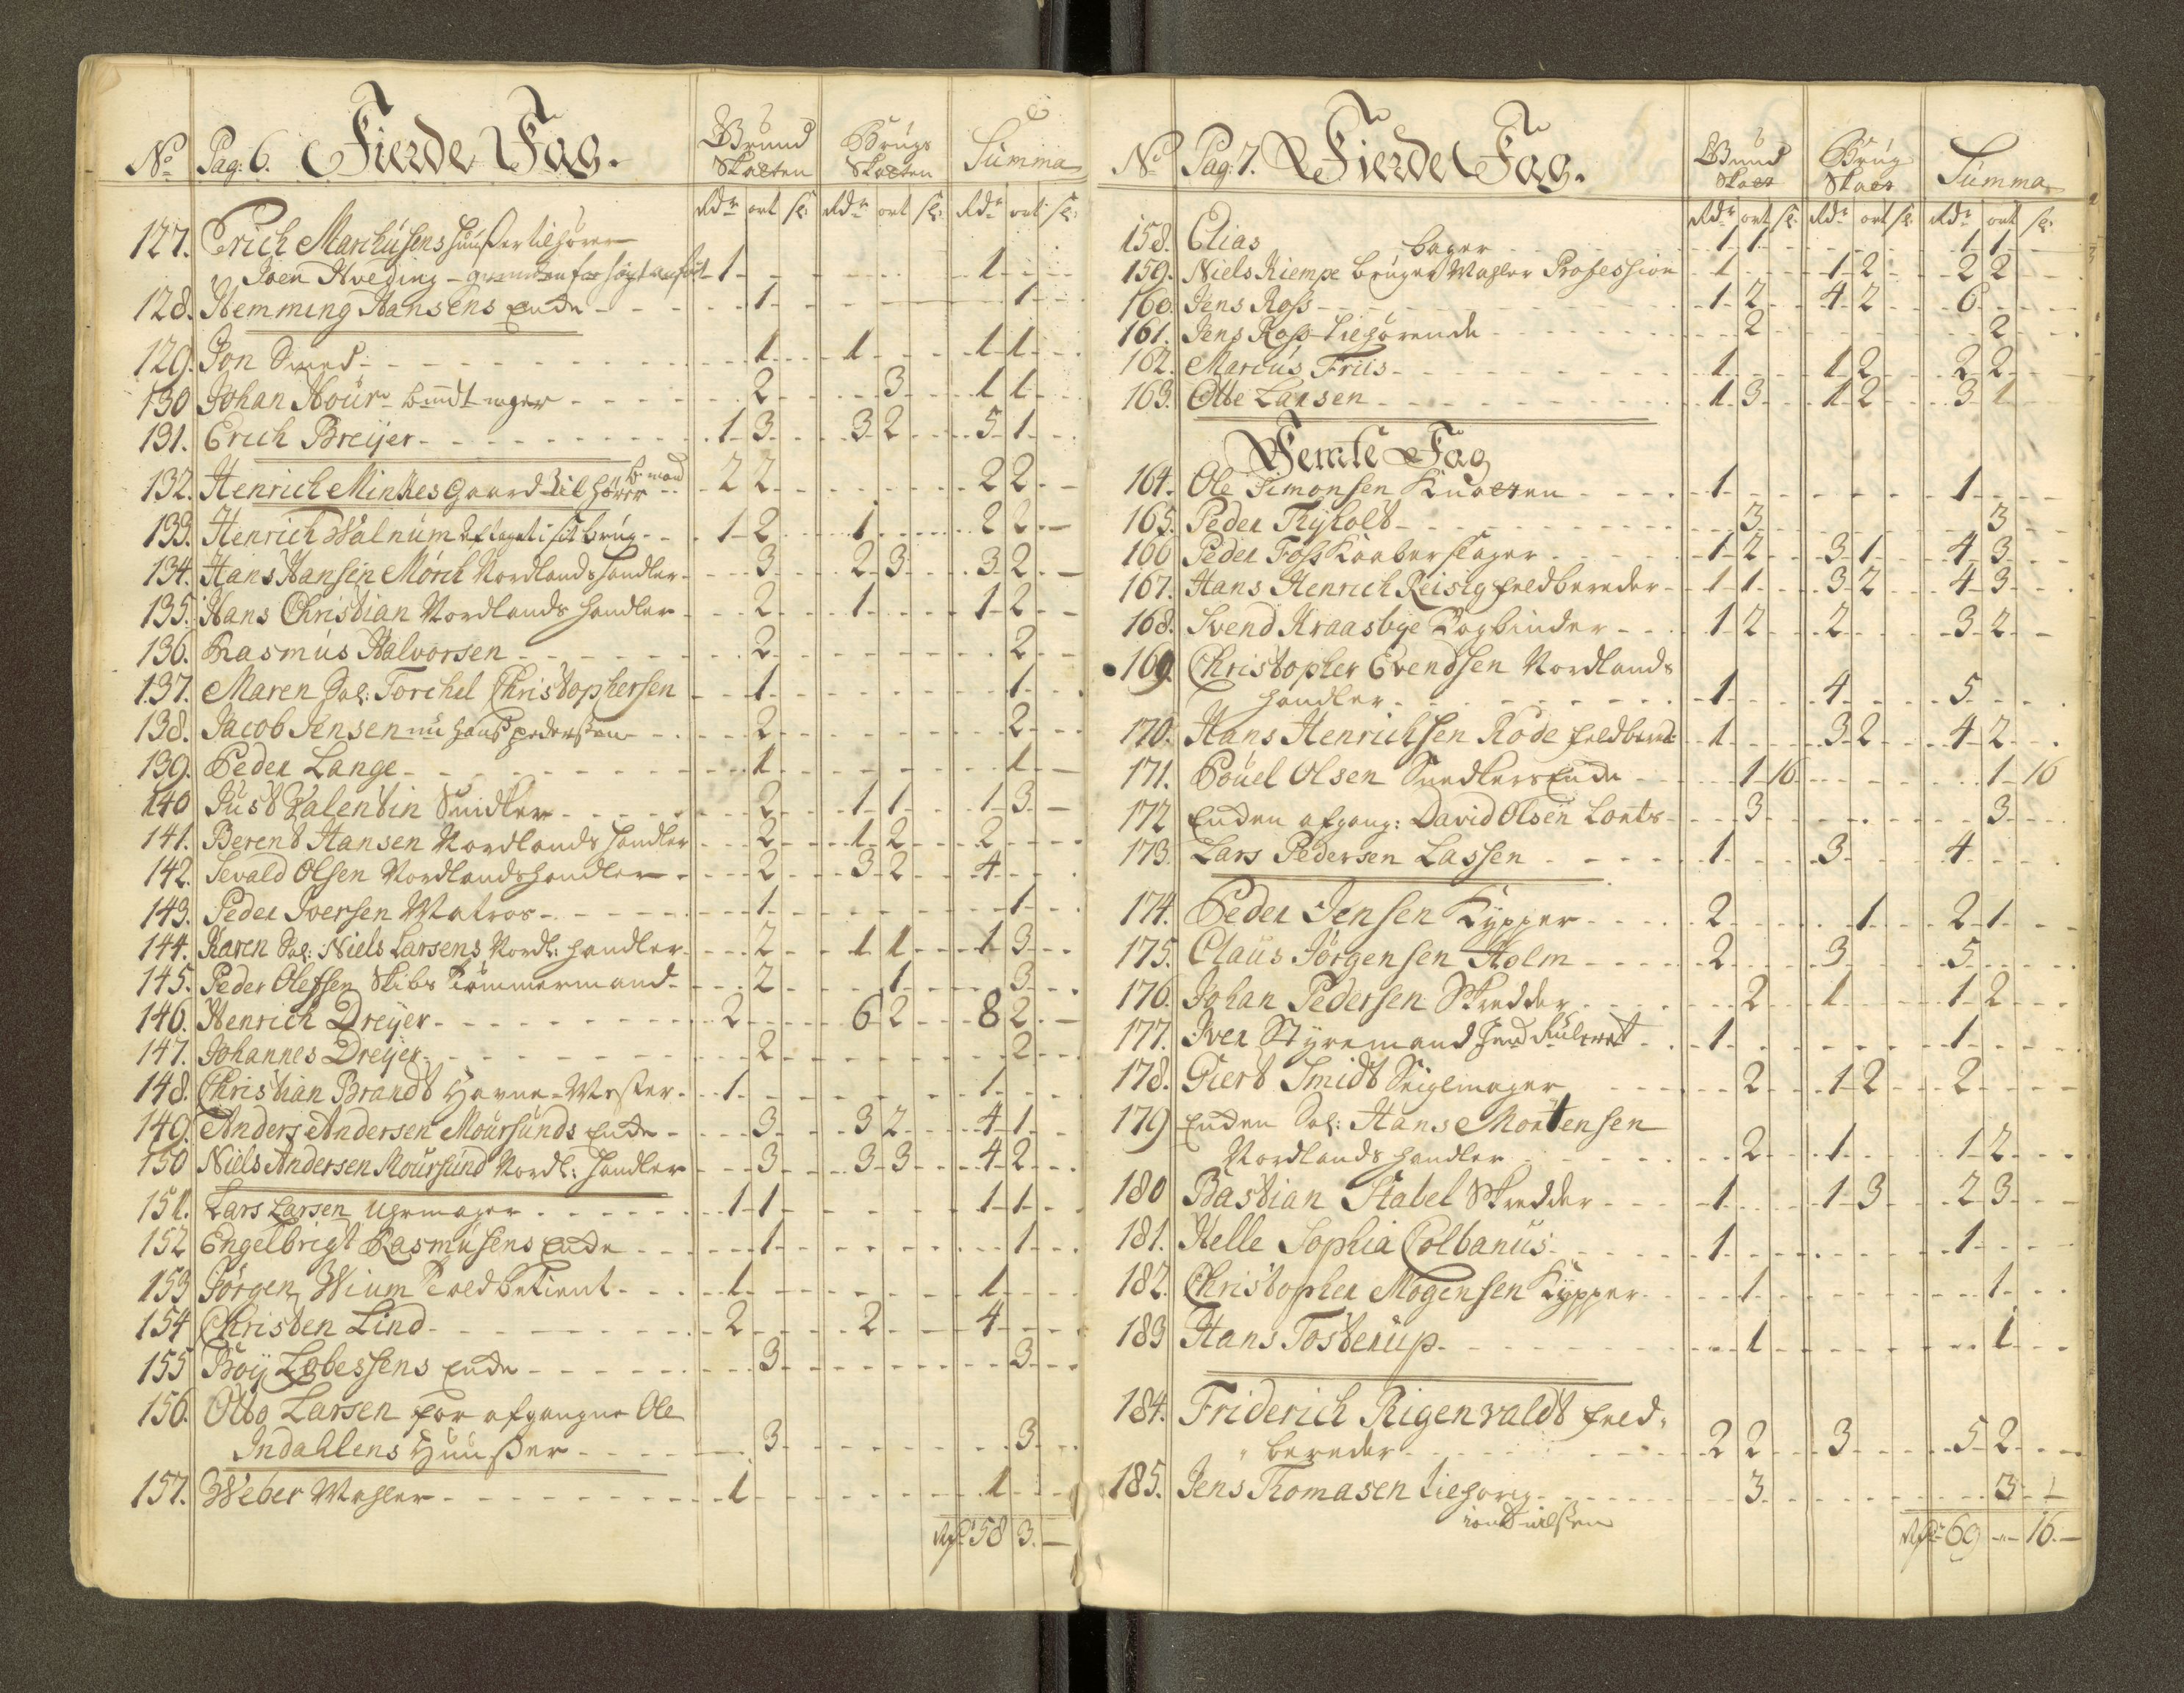 No Pag: 6. Fierde Fag. Grund Skatten Brugs Skatten Summa
Rdr ort s: Rdr ort s: Rdr ort s:
127. Erich Marchusens tilhører
Joen Hveding - 1 - - 1 - -
128. Hemming Hansens Encke - 1 - - 1 -
129. Jon Smed - 1 - 1 - - 1 1 -
130 Johan Hour bundtmager - 2 - - 3 - 1 1 -
131. Erich Breijer - 1 3 - 3 2 - 5 1 -
132. Henrich Minkes Gaard tilhører 2 2 - - 2 2 -
133. Henrich Walnum aflagt i sit brug - 1 2 - 1 - - 2 2 -
134. Hans Hansen Mørch Nordlandshandler - 3 - 2 3 - 3 2 -
135. Hans Christian Nordlands handler - 2 - 1 - - 1 2 -
136. Rasmus Halvorsen - 2 - - 2 -
137. Maren Sal: Torchel Christophersen - 1 - - 1 -
138. Jacob Jensen nu Hans Pedersen - 2 - - 2 -
139. Peder Lange - 1 - - 1 -
140 Just Valentin Snidker - 2 - 1 1 - 1 3 -
141. Berent Hansen Nordlands handler - 2 - 1 2 - 2 - -
142. Sevald Olsen Nordlandshandler - 2 - 3 2 - 4 - -
143. Peder Iversen Matros - 1 - - 1 -
144. Karen Sal: Niels Larsens Nordl: handler - 2 - 1 1 - 1 3 -
145. Peder Olessen Skibs Tømmermand - 2 - - 1 - - 3 -
146. Henrich Dreyer - 2 - - 6 2 - 8 2 -
147. Johannes Dreyer - 2 - - 2 -
148. Christian Brandt Havne-Mester - 1 - - 1 - -
149. Anders Andersen Moursunds Encke - 3 - 3 2 - 4 1 -
150 Niels Andersen Moursund Nordl: handler - 3 - 3 3 - 4 2 -
151. Lars Larsen Uhrmager - 1 1 - - 1 1 -
152 Engelbrigt Rasmusens Encke - 1 - - 1 -
153 Jørgen Wium Toldbetient - 1 - - 1 - -
154 Christen Lind - 2 - - 2 - - 4 - -
155 Boij Lobessens Encke - 3 - - 3 -
156. Otto Larsen for afgangne Ole
Indahlens Huuser - 3 - - 3 -
157. Weber Mahler - 1 - - 1 - -
58 3. -
No Pag: 7. Fierde Fag. Grund Skat Brug Skat Summa
Rdr ort s: Rdr ort s: Rdr ort s:
158. Elias bager - 1 1 - - 1 1 -
159. Niels Kiempe bruger Mahler Profession - 1 - - 1 2 - 2 2 -
160. Jens Ross - 1 2 - 4 2 - 6 - -
161. Jens Ross tilhørende - 2 - - 2 -
162. Marcus Friis - 1 - - 1 2 - 2 2 -
163. Otte Larsen - 1 3 - 1 2 - 3 1
Femte Fag
164. Ole Simonsen Knatten - 1 - - 1 - -
165. Peder Tryholt - 3 - - 3 -
166 Peder Foss Kaaberslager - 1 2 - 3 1 - 4 3 -
167. Hans Henrich Reisig feldbereder - 1 1 - 3 2 - 4 3 -
168. Svend Kraasbye Bogbinder - 1 2 - 2 - - 3 2 -
169. Christopher Evendsen Nordlands
handler - 1 - - 4 - - 5 - -
170. Hans Henrichsen Rode feldbered - 1 - - 3 2 - 4 2 -
171. Pouel Olsen Snedkers Encke - 1 16 - - 1 16
172 Encken afgang: David Olsen Lonts - 3 - - 3 -
173. Lars Pedersen Lassen - 1 - - 3 - - 4 - -
174. Peder Jensen Kypper - 2 - - - 1 - 2 1 -
175. Claus Jørgensen Holm - 2 - - 3 - - 5 - -
176. Johan Pedersen Skredder - 2 - 1 - - 1 2 -
177. Iver Styremand - 1 - - 1 - -
178. Giert Smidt Seiglmager - 2 - 1 2 - 2 - -
179 Encken Sal: Hans Mortensen
Nordlands handler - 2 - 1 - - 1 2 -
180 Bastian Stabel Skredder - 1 - - 1 3 - 2 3 -
181. Helle Sophia Colbanus - 1 - - 1 - -
182. Christopher Mogensen Kypper - 1 - - 1 -
183 Hans Tosterup - 1 - - 1 -
184. Friderich Rigenvaldt feld-
bereder - 2 2 - 3 - - 5 2 -
185. Jens Thomasen tilhørig - 3 - - 3 -
69 - 16 -